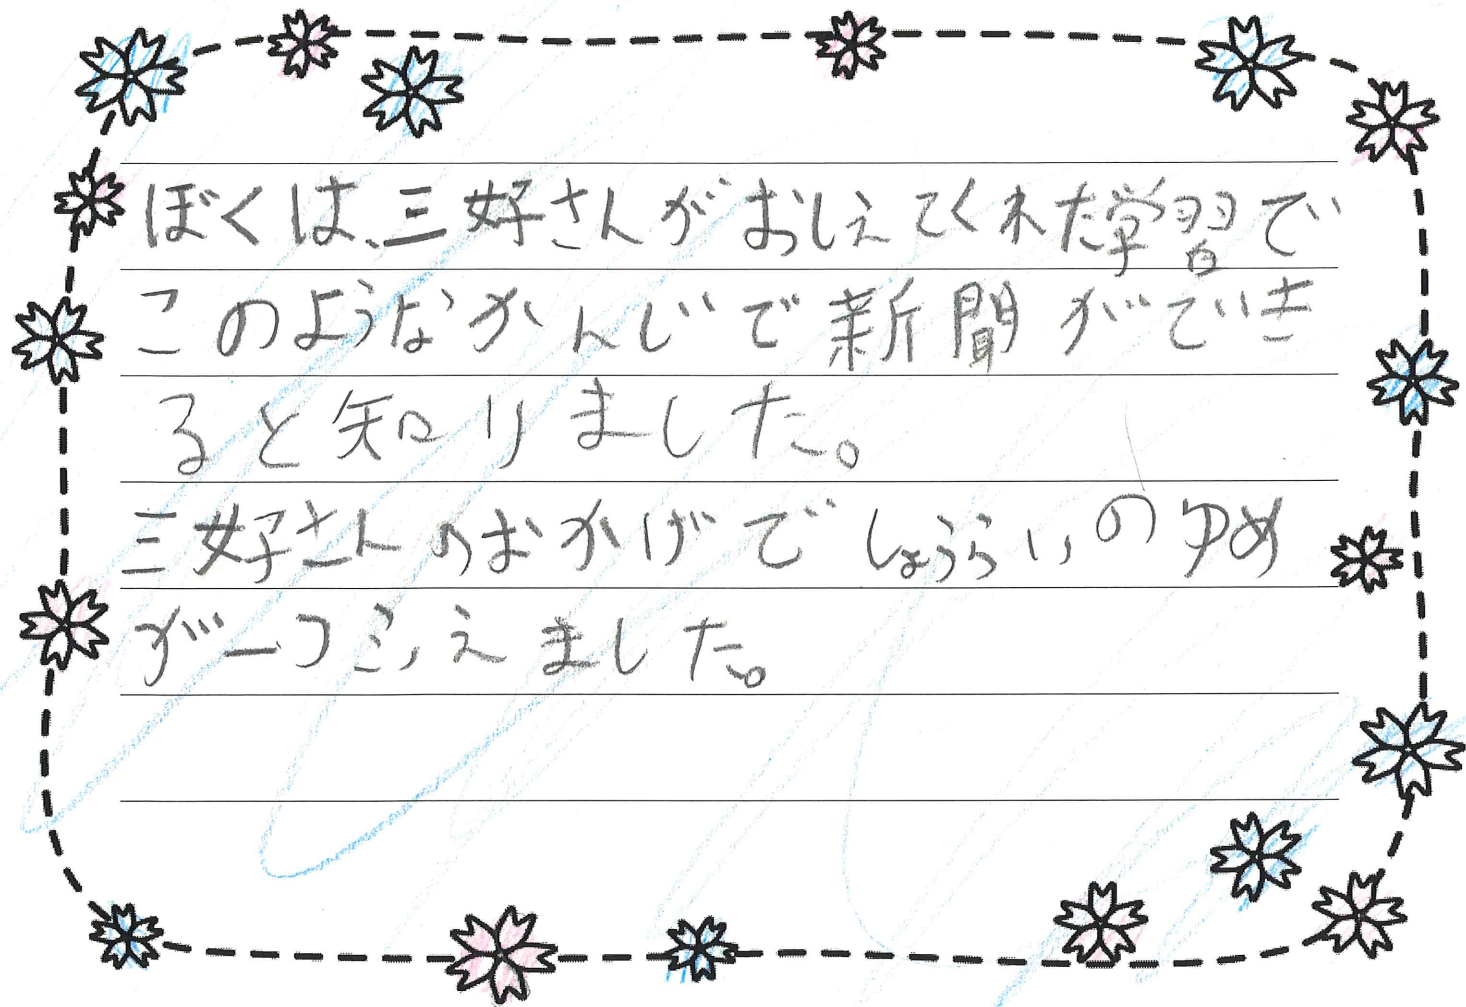 ぼくは、三好さんがおしえてくれた学習で
このようなかんじで新聞ができ
ると知りました。
三好さんのおかげでしょうらいのゆめ
が一つふえました。